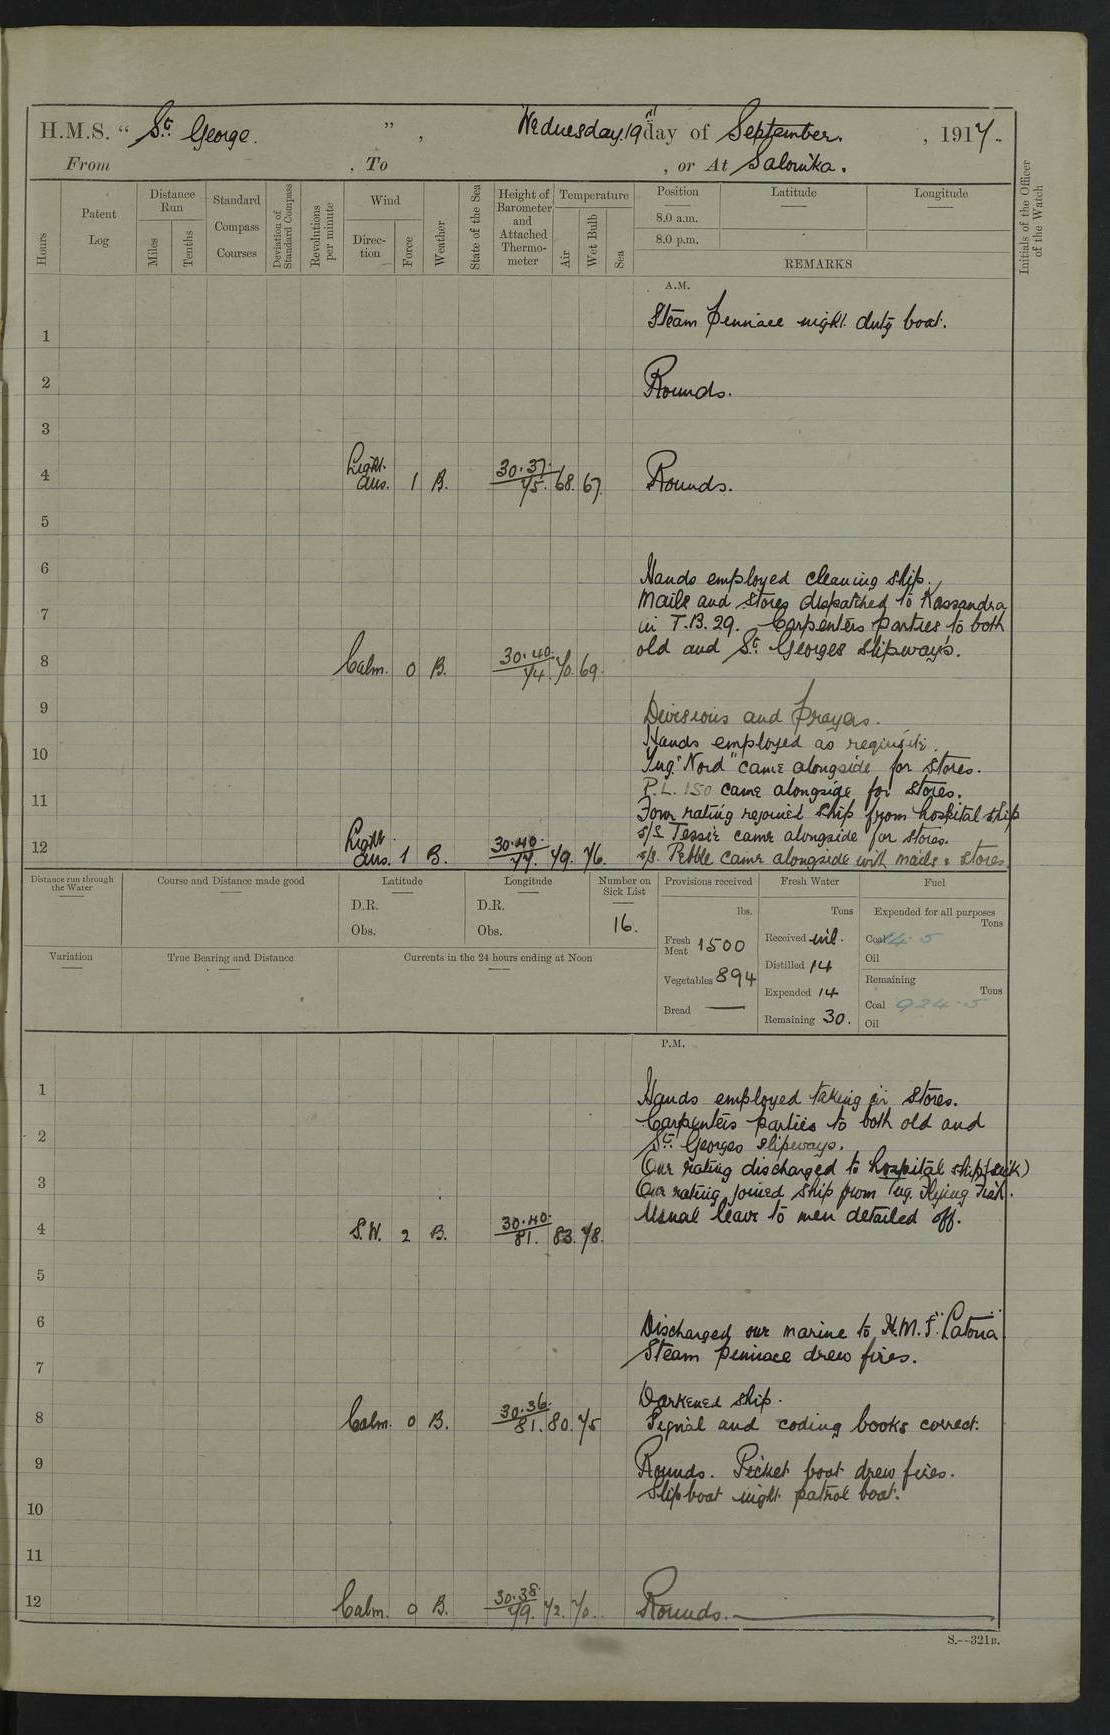 H.M.S. " St. George. ", Wednesday 19th day of September. , 1917.
From , To , or At Salonika.
Hours
Patent Log
Distance Run
Miles
Tenths
Standard Compass Courses
Deviation of Standard Compass
Revolutions per minute
Wind
Direction
Force
Weather
State of the Sea
Height of Barometer and Attached Thermometer
Temperature
Air
Wet Bulb
Sea
Position
8.0 a.m.
8.0 p.m.
Latitude
Longitude
REMARKS
Initials of the Officer of the Watch
A.M.
1 Steam pinnace night duty boat.
2 Rounds.
3
4 Light airs. 1 B. 30.37. 75. 68. 67. Rounds.
5
6 Hands employed cleaning ship.
Mails and stores dispatched to Kassandra
7 in T.B. 29. Carpenters parties to both
old and St. Georges slipways.
8 Calm. 0 B. 30.40. 74. 70. 69.
9 Divisions and prayers.
Hands employed as requisite.
10 Tug "Nord" came alongside for stores.
11 P.L. 150 came alongside for stores.
Four rating rejoined ship from hospital ship
s/s Tessie came alongside for stores.
12 Light airs. 1 B. 30.40. 77. 79. 76. s/s. Pebble came alongside with mails & stores.
Distance run through the Water
Course and Distance made good
Latitude
D.R.
Obs.
Longitude
D.R.
Obs.
Number on Sick List
16.
Provisions received
lbs.
Fresh Meat 1500
Vegetables 894
Bread —
Fresh Water
Tons
Received nil.
Distilled 14
Expended 14
Remaining 30.
Fuel
Expended for all purposes
Tons
Coal 14.5
Oil
Remaining
Tons
Coal 924.5
Oil
Variation
True Bearing and Distance
Currents in the 24 hours ending at Noon
P.M.
1 Hands employed taking in stores.
Carpenters parties to both old and
2 St. Georges slipways.
One rating discharged to hospital ship (sick)
3 One rating joined ship from Tug. Flying Fish.
Usual leave to men detailed off.
4 S.W. 2 B. 30.40. 81. 83. 78.
5
6 Discharged one marine to H.M.S. "Latona"
7 Steam pinnace drew fires.
Darkened ship.
8 Calm. 0 B. 30.36. 81. 80. 75 Signal and coding books correct.
9 Rounds. Picket boat drew fires.
Slip boat night patrol boat.
10
11
12 Calm. 0 B. 30.38. 79. 72. 70. Rounds.
S.—321B.